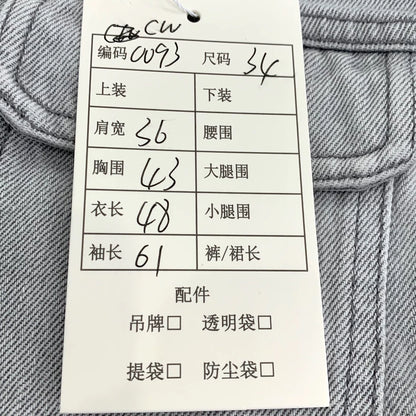 CW
编码 0093 尺码 34
上装 下装
肩宽 36 腰围
胸围 43 大腿围
衣长 48 小腿围
袖长 61 裤/裙长
配件
吊牌□ 透明袋□
提袋□ 防尘袋□